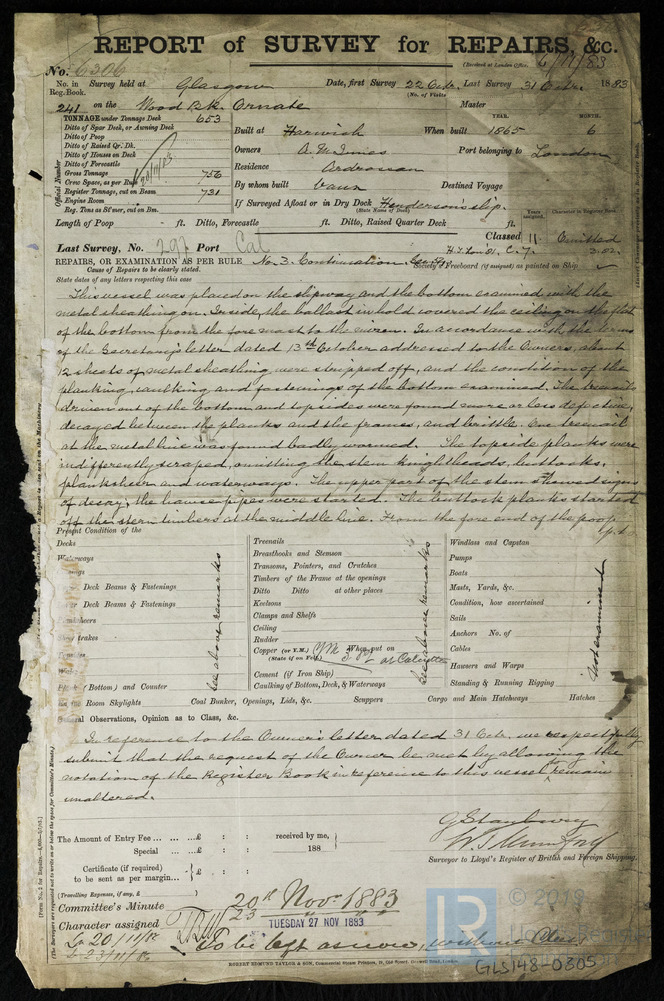 REPORT of SURVEY for REPAIRS, &c.
No. 6306
(Received at London Office, 6/11/83
No. in Reg. Book. Survey held at Glasgow Date, first Survey 22 Octr. Last Survey 31 Octr. 1883
(No. of Visits
241 on the Wood Bk. Ornate Master
TONNAGE under Tonnage Deck 653
Ditto of Spar Deck, or Awning Deck
Ditto of Poop
Ditto of Raised Qr. Dk.
Ditto of Houses on Deck
Ditto of Forecastle
Gross Tonnage 756
Crew Space, as per Rule
Register Tonnage, cut on Beam 731
Engine Room
Reg. Tons as St'mer, cut on Bm.
Official Number
Built at Harwich When built YEAR. 1865 MONTH. 6
Owners A. McInnes Port belonging to London
Residence Ardrossan
By whom built Vaux Destined Voyage
If Surveyed Afloat or in Dry Dock Henderson's slip.
(State Name of Dock)
Length of Poop - ft. Ditto, Forecastle ft. Ditto, Raised Quarter Deck ft.
Years assigned. Character in Register Book.
Classed 11 Omitted
3.82.
Last Survey, No. 292 Port Cal
REPAIRS, OR EXAMINATION AS PER RULE No. 3. Continuation
Society's Freeboard (if assigned) as painted on Ship
Cause of Repairs to be clearly stated.
State dates of any letters respecting this case
This vessel was placed on the slipway and the bottom examined with the
metal sheathing on. Inside, the ballast in hold covered the ceiling on the flat
of the bottom from the fore mast to the mizen. In accordance with the terms
of the Secretary's letter dated 13th October addressed to the Owners, about
12 sheets of metal sheathing were stripped off, and the condition of the
planking, caulking and fastenings of the bottom examined. The treenails
driven out of the bottom and topsides were found more or less defective,
decayed between the planks and the frames, and brittle. One treenail
at the metal line was found badly wormed. The topside planks were
indifferently scraped, omitting the stem knightheads, buttocks,
planksheer and waterways. The upper part of the stem showed signs
of decay; the hawse pipes were started. The buttock planks started
off the stern timbers at the middle line. From the fore end of the poop
Present Condition of the
Decks
Waterways
Deck Beams & Fastenings
Deck Beams & Fastenings
(Bottom) and Counter
See above remarks
Treenails
Breasthooks and Stemson
Transoms, Pointers, and Crutches
Timbers of the Frame at the openings
Ditto Ditto at other places
Keelsons
Clamps and Shelfs
Ceiling
Rudder
Copper (or Y.M.) Y.M. When put on
(State if on Felt) 3.82 at Calcutta
Cement (if Iron Ship)
Caulking of Bottom, Deck, & Waterways
See above remarks
Windlass and Capstan
Pumps
Boats
Masts, Yards, &c.
Condition, how ascertained
Sails
Anchors No. of
Cables
Hawsers and Warps
Standing & Running Rigging
Not examined
Room Skylights Coal Bunker, Openings, Lids, &c. Scuppers Cargo and Main Hatchways Hatches
General Observations, Opinion as to Class, &c.
In reference to the Owner's letter dated 31 Octr. we respectfully
submit that the request of the Owner be met by allowing the
notation of the Register Book in reference to this vessel remain
unaltered.
The Amount of Entry Fee ... £ : : received by me,
Special ... £ : : 188
Certificate (if required) to be sent as per margin... £ : :
(Travelling Expenses, if any, £
G Stanbury
W T Mumford
Surveyor to Lloyd's Register of British and Foreign Shipping.
Committee's Minute 20th Novr 1883
23 " "
Character assigned
TUESDAY 27 NOV 1883
To be left as now, without Class
20/11/83
23/11/83
ROBERT EDMUND TAYLOR & SON, Commercial Steam Printers, 19, Old Street, Goswell Road, London.
GLS148-0305
LR
© 2019